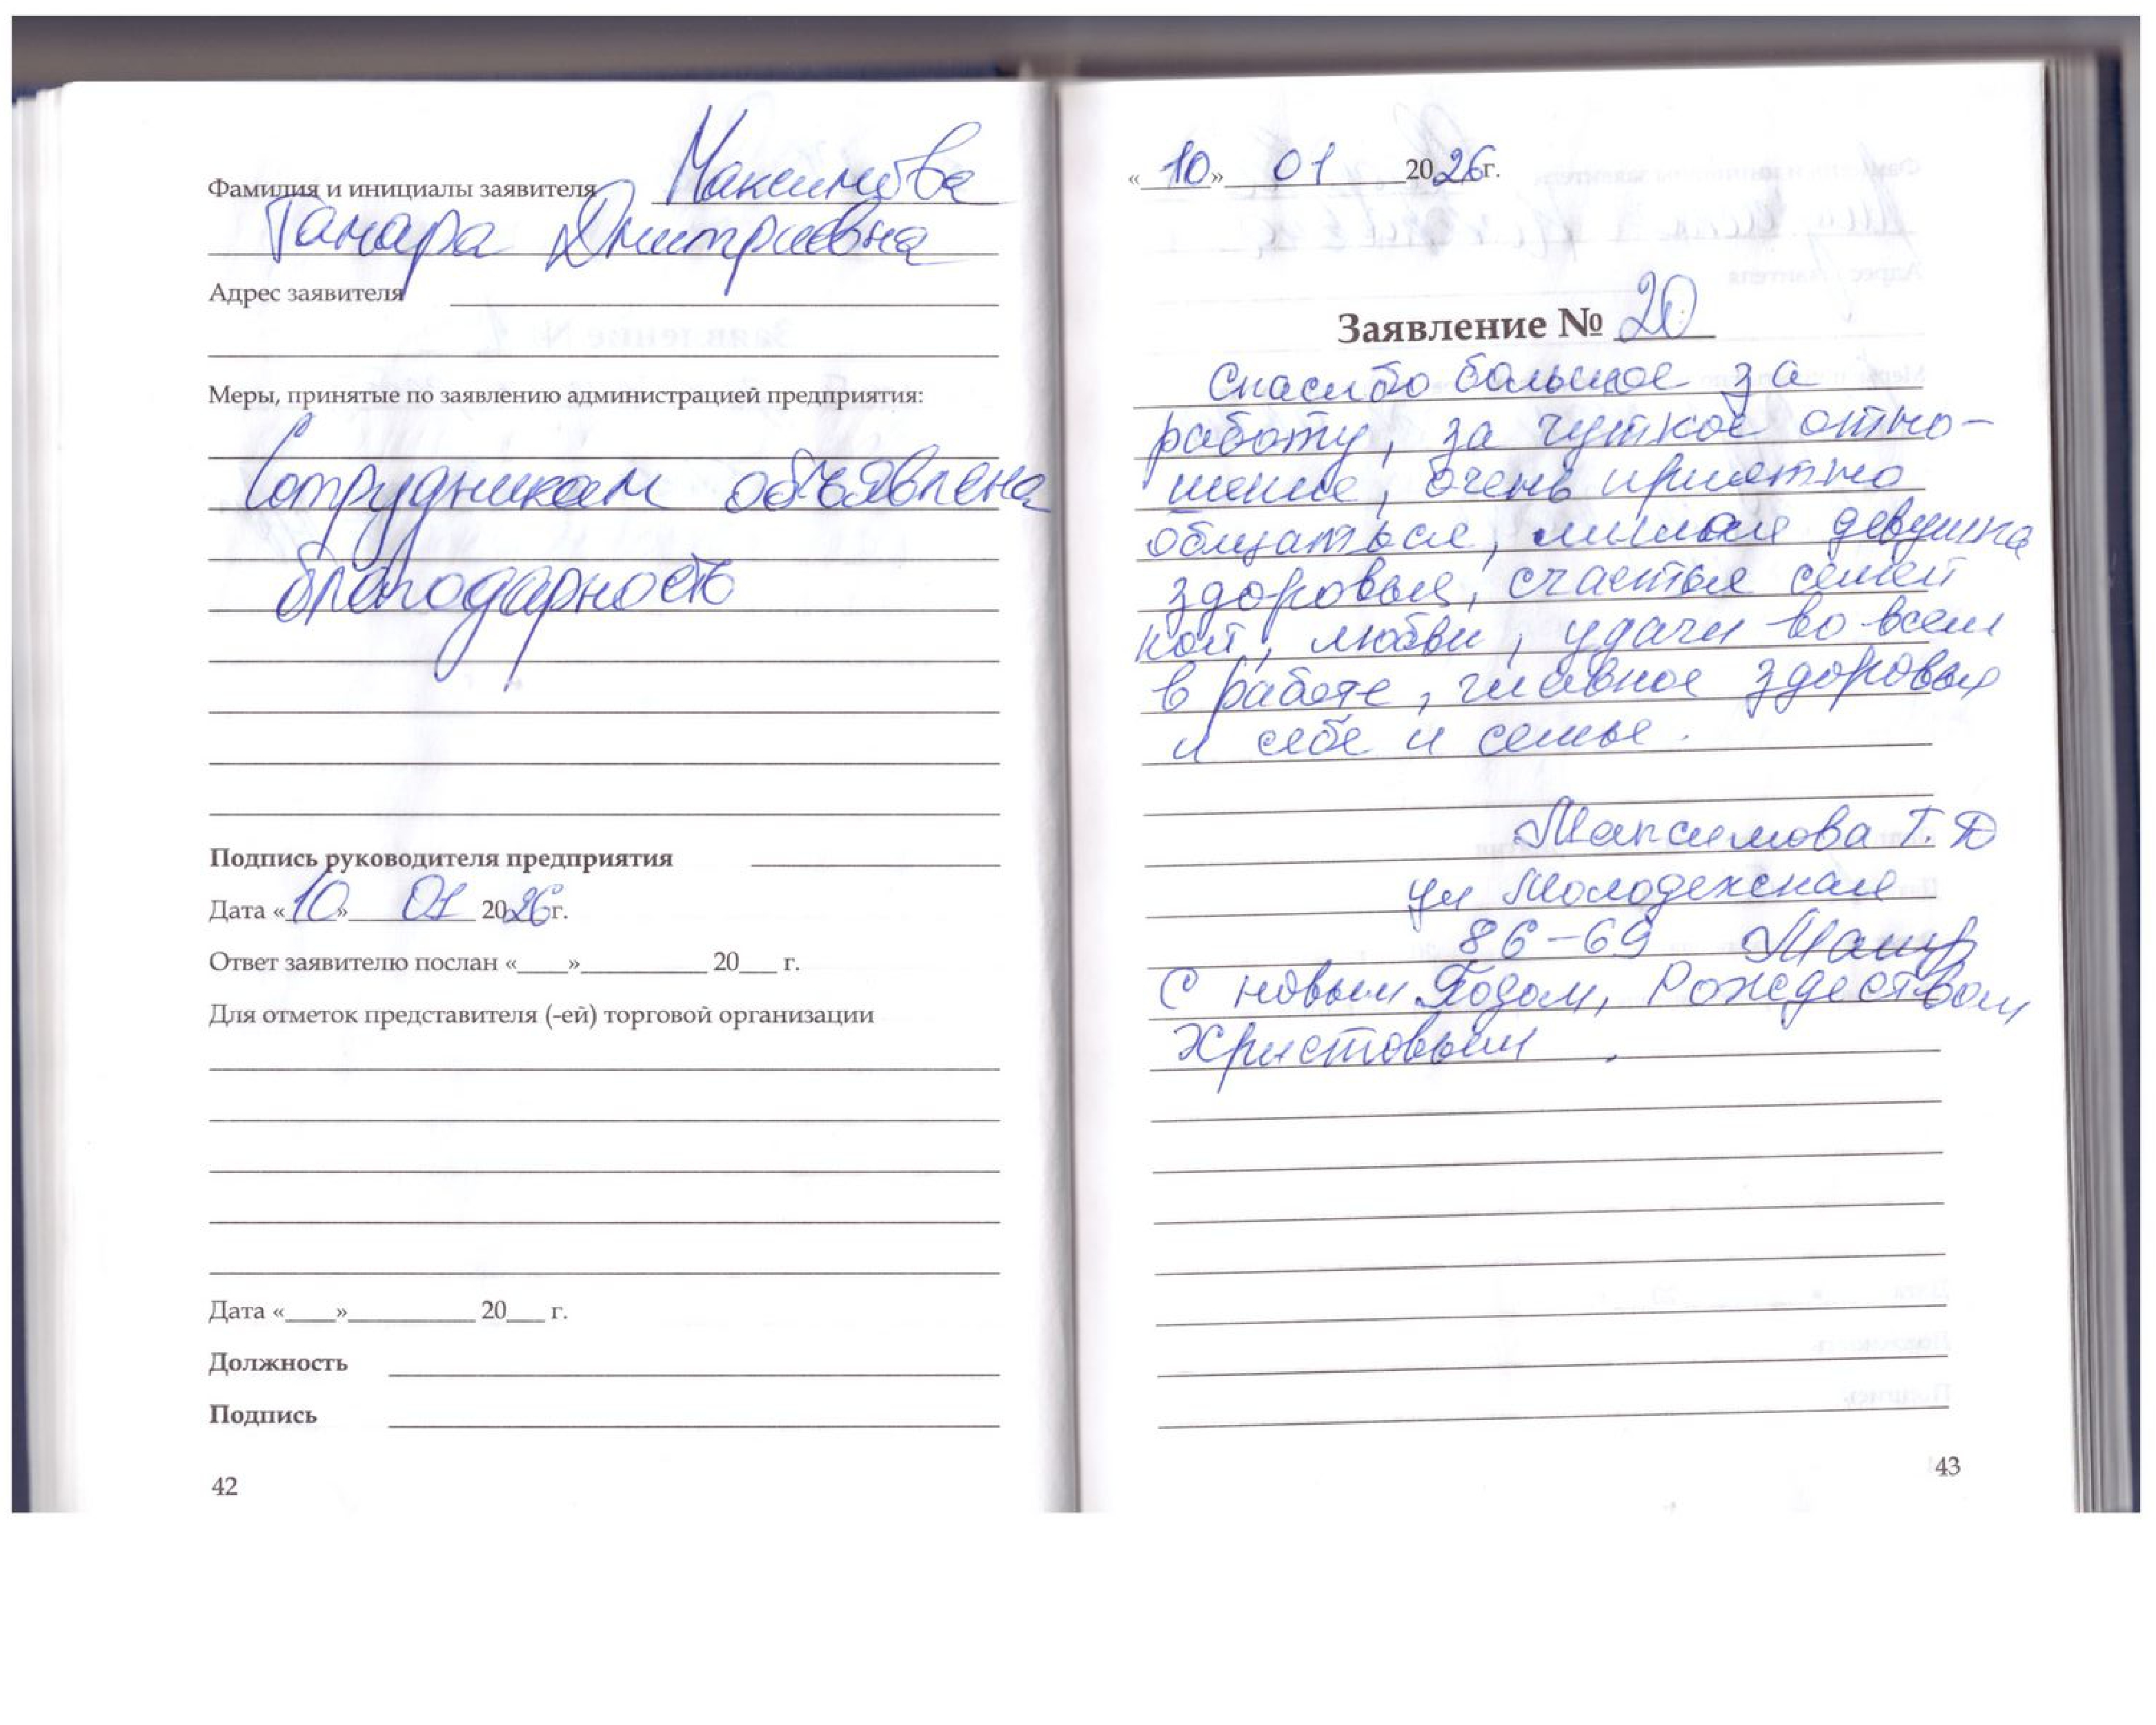 Фамилия и инициалы заявителя Максимова
Тамара Дмитриевна
Адрес заявителя
Меры, принятые по заявлению администрацией предприятия:
Сотрудникам объявлена
благодарность
Подпись руководителя предприятия
Дата «10» 01 2026г.
Ответ заявителю послан «____»__________ 20___ г.
Для отметок представителя (-ей) торговой организации
Дата «____»__________ 20___ г.
Должность
Подпись
42
«10» 01 2026г.
Заявление № 20
Спасибо большое за
работу, за чуткое отно-
шение, очень приятно
общаться, милая девушка
здоровья, счастья семей
ной, любви, удачи во всем
в работе, главное здоровья
и себе и семье.
Максимова Т. Д
ул Молодежная
86-69
С новым Годом, Рождеством
Христовым.
43